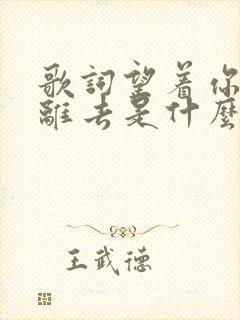 歌詞望着你
離去是什麼
王武德